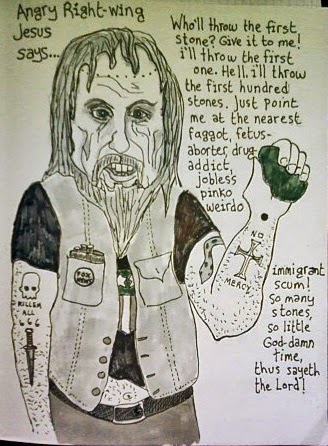 Angry Right-wing
Jesus
says...
Who'll throw the first
stone? Give it to me!
i'll throw the first
one. Hell, i'll throw
the first hundred
stones. Just point
me at the nearest
faggot, fetus-
aborter, drug
addict,
jobless
pinko
weirdo
immigrant
scum!
So many
stones,
so little
God-damn
time,
thus sayeth
the Lord!
FOX
NEWS
KILLEM
ALL
666
NO
MERCY